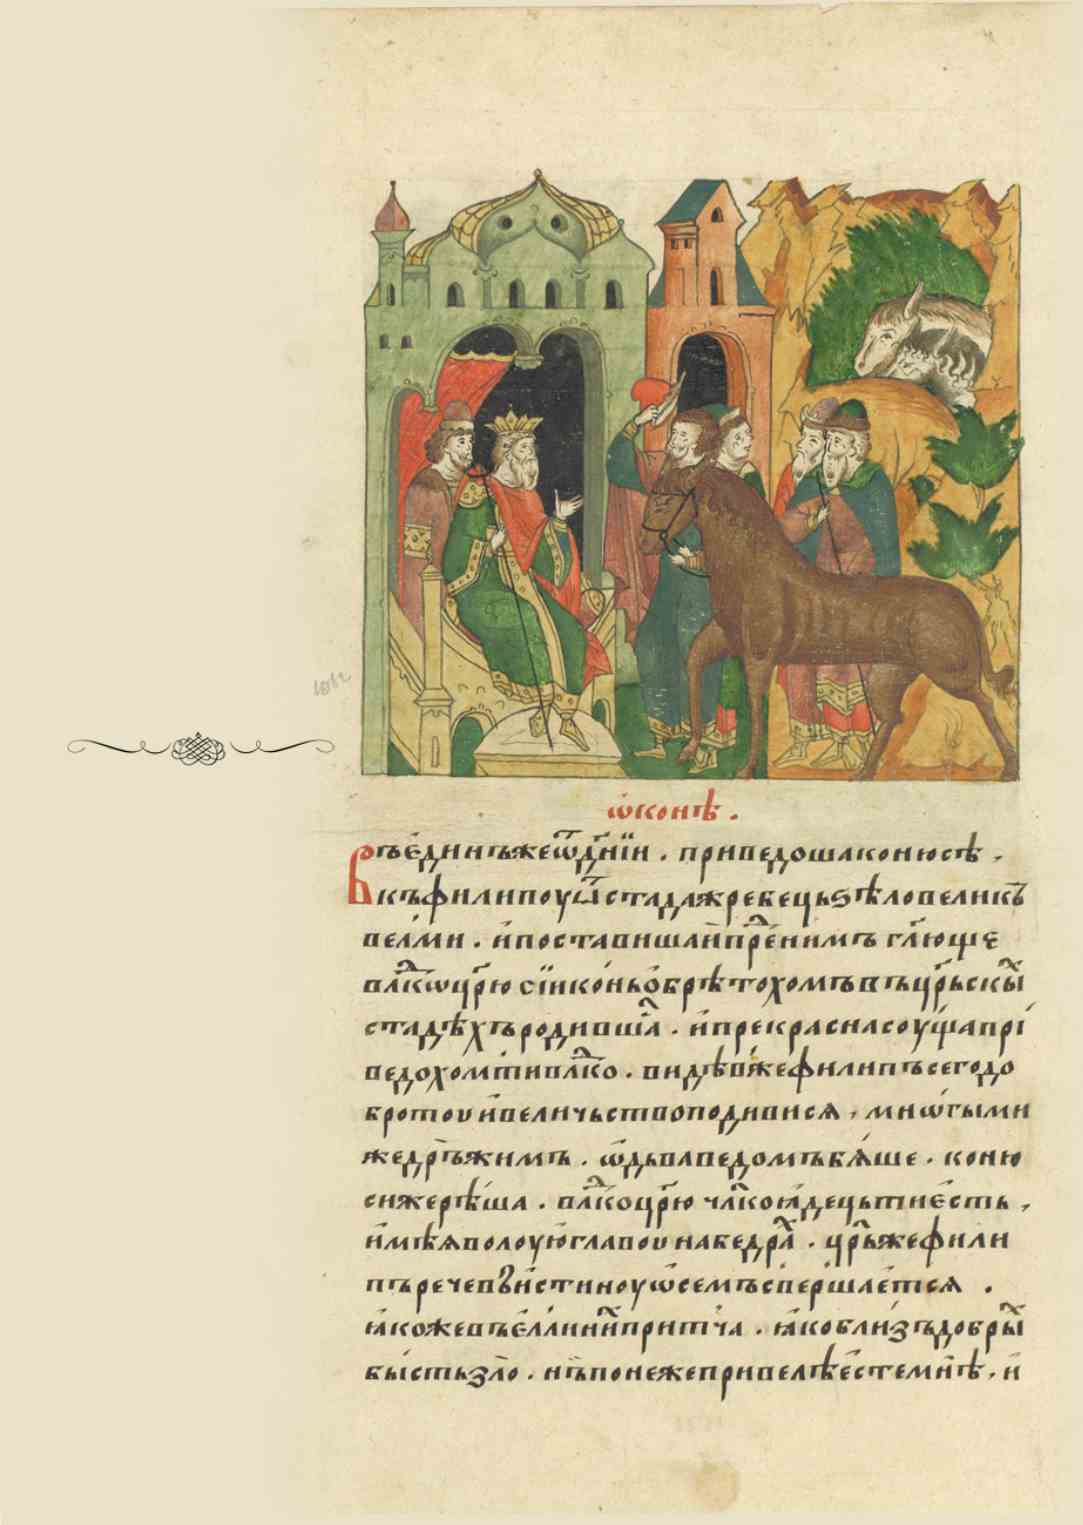 ѡ҆ конѣ .
Въ є҆динъ же ѿ дн҃їи . приведоша конюсѣ .
къ филипоу ѿ стада жребець ѕѣло великъ
велми . и҆ поставиша и҆ прⷣе нимъ гл҃юще
влⷣко цр҃ю сїи конь ѡ҆брѣтохомъ въ цр҃ьскыⷯ
стадѣхъ родивша . и҆ прекрасна соуща прї
ведохомъ ти влⷣко . видѣв же филипъ сего до
бротоу и҆ величьство подивися , мнѡгыми
же дръжимъ . ѿдьвла ведомъ бяше . коню
сиже рѣша . влⷣко цр҃ю члⷣкоꙗ҆дець ти є҆сть ,
и҆мѣя волоуюю главоу на бедрⷯа . цр҃ь же фили
пъ рече въи҆стиноу ѡ семъ свершае҆тся .
ꙗ҆коже въ є҆ллинⷯи притча . ꙗ҆ко близъ добрыⷯ
бысть зло . нъ понеже привелѣ е҆сте мнѣ , и҆